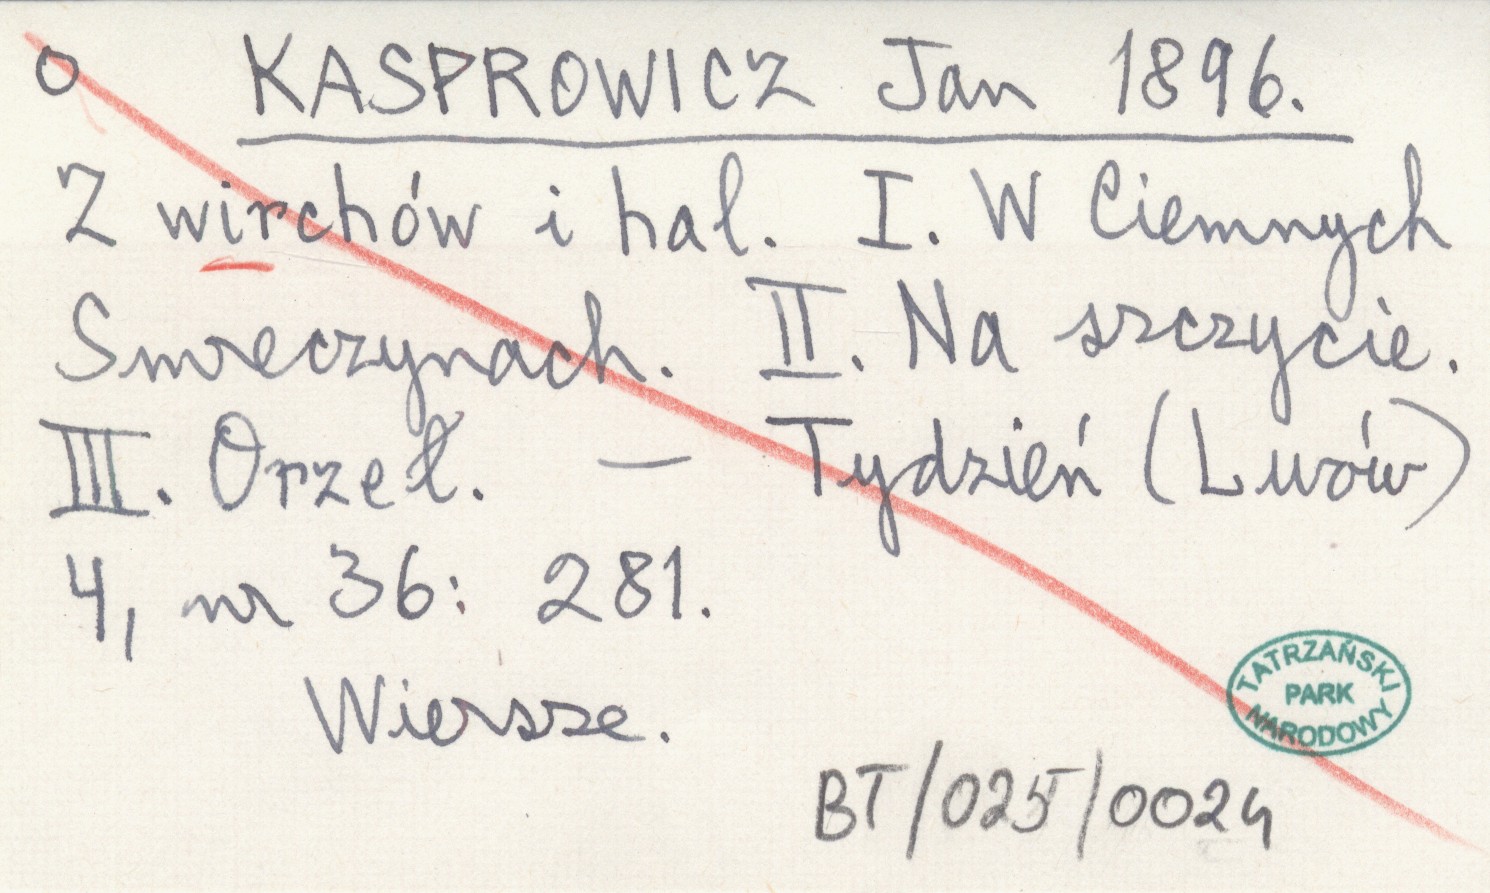 O KASPROWICZ Jan 1896.
Z wirchów i hal. I. W Ciemnych
Smreczynach. II. Na szczycie.
III. Orzeł. — Tydzień (Lwów)
4, nr 36: 281.
Wiersze.
TATRZAŃSKI
PARK
NARODOWY
BT/025/0024